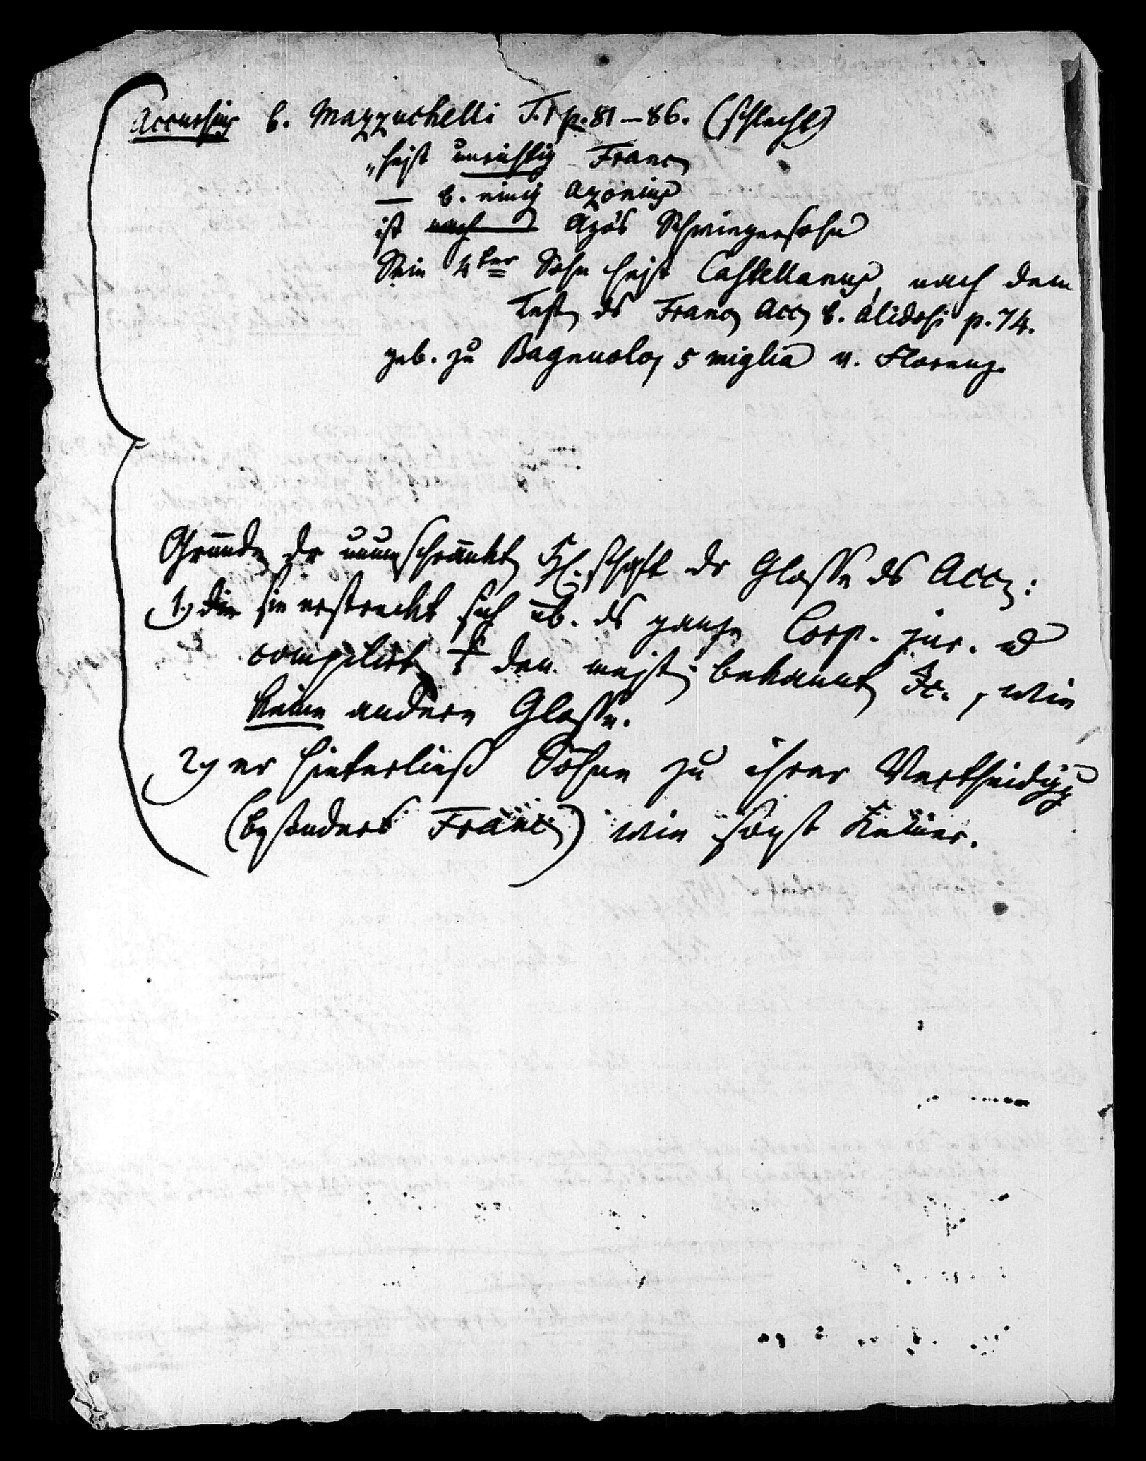 Accursius b. Mazzuchelli T. 1 p. 81–86. (schlecht)
„heißt unrichtig Franc
— b. einig Azonius
ist nach Azos Schwiegersohn
Sein 4ter Sohn heißt Castellanus, nach dem
Test ds Franc Acc b. Alidosi p. 74.
geb. zu Bagnuolo, 5 miglia v. Florenz.
Gründe dr unumschränkt Hschaft dr Glosse ds Acc:
1) die sie erstreckt sich üb. ds ganze Corp. jur. u
compilirt den meist bekannt Jc., wie
keine andere Glosse.
2) er hinterließ Söhne zu ihrer Vertheidigg
(besonders Franc) wie sonst Keiner.